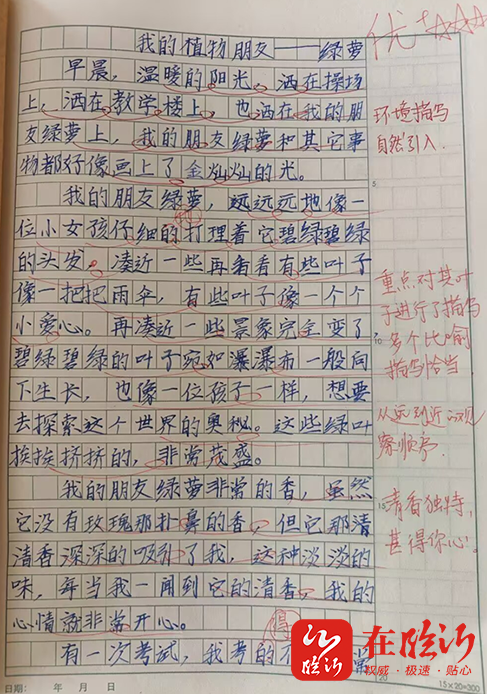 我的植物朋友——绿萝
优+☆☆☆
早晨，温暖的阳光，洒在操场
上，洒在教学楼上，也洒在我的朋
友绿萝上，我的朋友绿萝和其它事
物都好像画上了金灿灿的光。
环境描写
自然引入．
我的朋友绿萝，远远远地像一
位小女孩仔细的打理着它碧绿碧绿
地
的头发。凑近一些再看看有些叶子
像一把把雨伞，有些叶子像一个个
小爱心。再凑近一些景象完全变了
碧绿碧绿的叶子宛如瀑瀑布一般向
下生长，也像一位孩子一样，想要
去探索这个世界的奥秘。这些绿叶
挨挨挤挤的，非常茂盛。
重点对其叶
子进行了描写
多个比喻
描写恰当．
从远到近的观
察顺序．
我的朋友绿萝非常的香，虽然
它没有玫瑰那扑鼻的香，但它那清
清香深深的吸引了我，这种淡淡的
味，每当我一闻到它的清香，我的
心情就非常开心。
清香独特，
甚得你心！
有一次考试，我考的不
得
常
在临沂
权威·极速·贴心
5
10
15
日期： 年 月 日
15×20=300